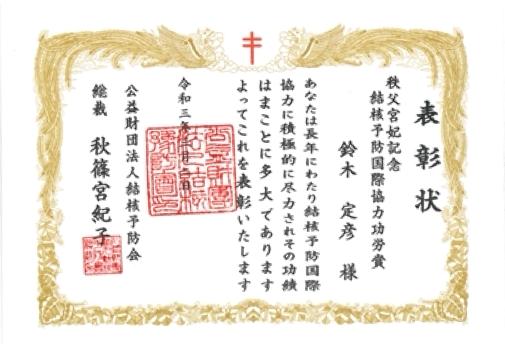 表彰状
秩父宮妃記念
結核予防国際協力功労賞
鈴木 定彦 様
あなたは長年にわたり結核予防国際
協力に積極的に尽力されその功績
はまことに多大であります
よってこれを表彰いたします
令和三年 月 日
公益財団法人結核予防会
総裁 秋篠宮紀子